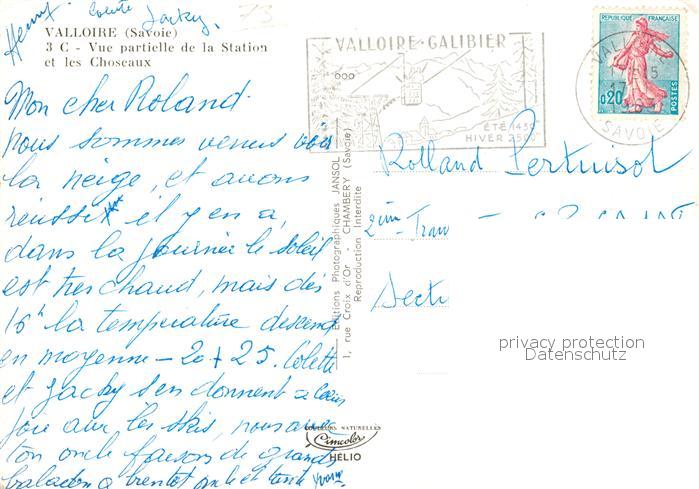 Henri Colette Jacky.
73
VALLOIRE (Savoie)
3 C - Vue partielle de la Station
et les Choseaux
Mon cher Roland.
nous sommes venus voir
la neige, et avons
réussi il y en a,
dans la journée le soleil
est tres chaud, mais dès
16h la température descend
en moyenne - 20 + 25. Colette
et Jacky s'en donnent a Coeur
joie avec les skis, nous avec
ton oncle faisons de grandes
balades a bientot oncle et tante Yvonne.
VALLOIRE-GALIBIER
ÉTÉ 1430
HIVER 2500
REPUBLIQUE FRANÇAISE
0,20
POSTES
VALLOIRE
SAVOIE
Editions Photographiques JANSOL
1, rue Croix d'Or, CHAMBERY (Savoie)
Reproduction Interdite
Rolland Pertuisot
2ème Tran
Secti
privacy protection
Datenschutz
COULEURS NATURELLES
Cimcolor
HÉLIO